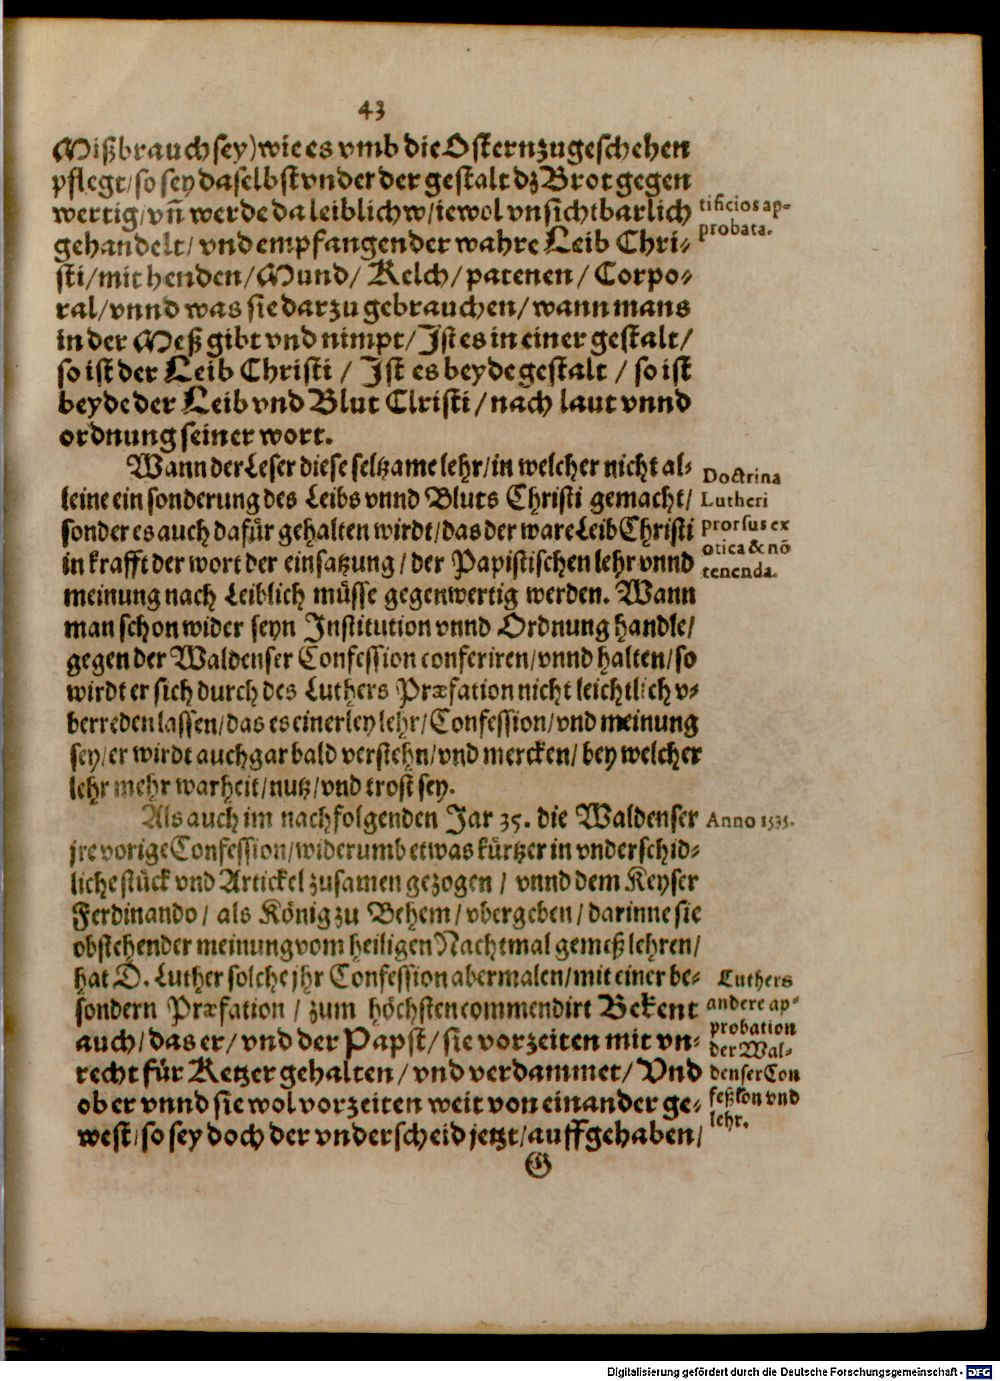 43
Mißbrauch sey) wie es vmb die Ostern zugeschehen
pflegt/ so sey daselbst vnder der gestalt dz Brot gegen
wertig/ vñ werde da leiblich w/iewol vnsichtbarlich
gehandelt/ vnd empfangen der wahre Leib Chri-
sti/ mit henden/ Mund/ Kelch/ patenen/ Corpo-
ral/ vnnd was sie darzu gebrauchen/ wann mans
in der Meß gibt vnd nimpt/ Ist es in einer gestalt/
so ist der Leib Christi / Ist es beyde gestalt / so ist
beyde der Leib vnd Blut Clristi / nach laut vnnd
ordnung seiner wort.
tificios ap-
probata.
Wann der Leser diese seltzame lehr/ in welcher nicht al-
leine ein sonderung des Leibs vnnd Bluts Christi gemacht/
sonder es auch dafür gehalten wirdt/ das der ware Leib Christi
in krafft der wort der einsatzung / der Papistischen lehr vnnd
meinung nach Leiblich müsse gegenwertig werden. Wann
man schon wider seyn Institution vnnd Ordnung handle/
gegen der Waldenser Confession conferiren/ vnnd halten/ so
wirdt er sich durch des Luthers Præfation nicht leichtlich v-
berreden lassen/ das es einerley lehr/ Confession/ vnd meinung
sey/ er wirdt auch gar bald verstehn/ vnd mercken/ bey welcher
lehr mehr warheit/ nutz/ vnd trost sey.
Doctrina
Lutheri
prorsus ex
otica & nō
tenenda.
Als auch im nachfolgenden Jar 35. die Waldenser
jre vorige Confession/ widerumb etwas kürtzer in vnderschid-
liche stück vnd Artickel zusamen gezogen / vnnd dem Keyser
Ferdinando / als König zu Behem/ vbergeben / darinne sie
obstehender meinung vom heiligen Nachtmal gemeß lehren/
hat D. Luther solche jhr Confession abermalen/ mit einer be-
sondern Præfation / zum höchsten commendirt Bekent
auch/ das er/ vnd der Papst/ sie vorzeiten mit vn-
recht für Ketzer gehalten/ vnd verdammet/ Vnd
ob er vnnd sie wol vorzeiten weit von einander ge-
west/ so sey doch der vnderscheid jetzt/ auffgehaben/
Anno 1535.
Luthers
andere ap-
probation
der Wal-
denser Con
feßkon vnd
lehr.
G
Digitalisierung gefördert durch die Deutsche Forschungsgemeinschaft - DFG